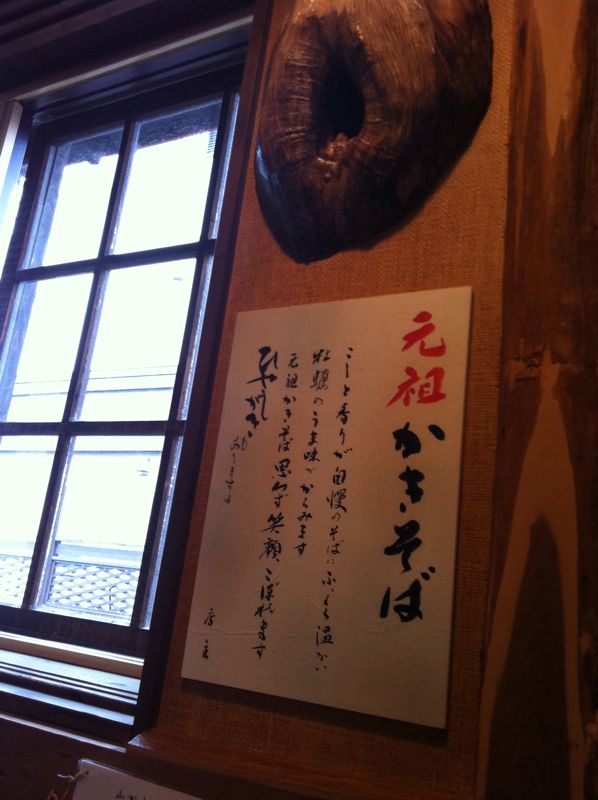 元祖かきそば
こしと香りが自慢のそばにふっくら温かい
牡蠣のうま味がからみます
元祖かきそば思わず笑顔、こぼれます
ひやがき
もあります
店主